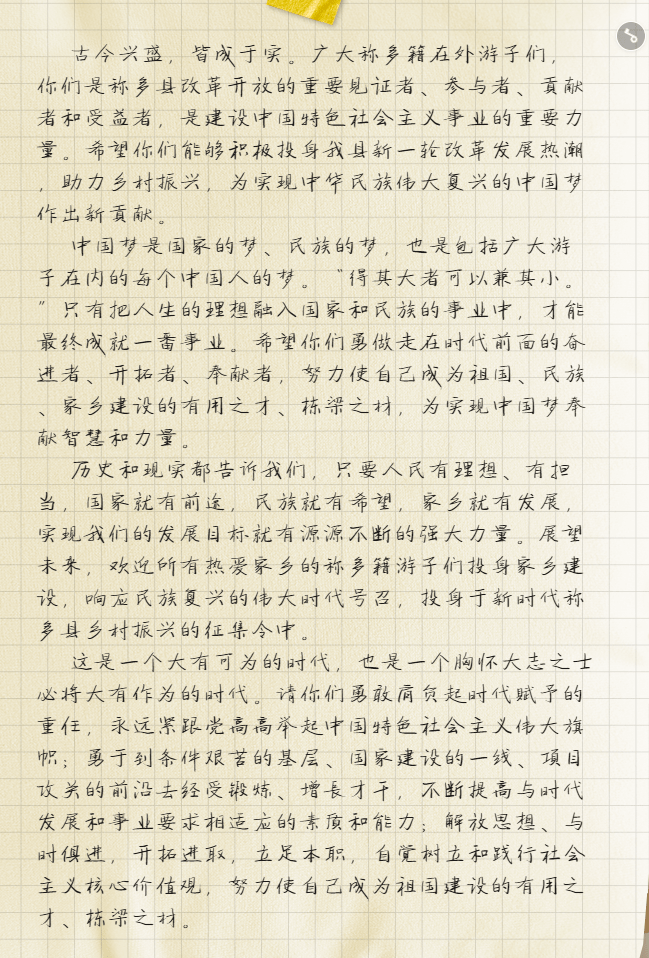 古今兴盛，皆成于实。广大称多籍在外游子们，
你们是称多县改革开放的重要见证者、参与者、贡献
者和受益者，是建设中国特色社会主义事业的重要力
量。希望你们能够积极投身我县新一轮改革发展热潮
，助力乡村振兴，为实现中华民族伟大复兴的中国梦
作出新贡献。
中国梦是国家的梦、民族的梦，也是包括广大游
子在内的每个中国人的梦。“得其大者可以兼其小。
”只有把人生的理想融入国家和民族的事业中，才能
最终成就一番事业。希望你们勇做走在时代前面的奋
进者、开拓者、奉献者，努力使自己成为祖国、民族
、家乡建设的有用之才、栋梁之材，为实现中国梦奉
献智慧和力量。
历史和现实都告诉我们，只要人民有理想、有担
当，国家就有前途，民族就有希望，家乡就有发展，
实现我们的发展目标就有源源不断的强大力量。展望
未来，欢迎所有热爱家乡的称多籍游子们投身家乡建
设，响应民族复兴的伟大时代号召，投身于新时代称
多县乡村振兴的征集令中。
这是一个大有可为的时代，也是一个胸怀大志之士
必将大有作为的时代。请你们勇敢肩负起时代赋予的
重任，永远紧跟党高高举起中国特色社会主义伟大旗
帜；勇于到条件艰苦的基层、国家建设的一线、项目
攻关的前沿去经受锻炼、增长才干，不断提高与时代
发展和事业要求相适应的素质和能力；解放思想、与
时俱进，开拓进取，立足本职，自觉树立和践行社会
主义核心价值观，努力使自己成为祖国建设的有用之
才、栋梁之材。